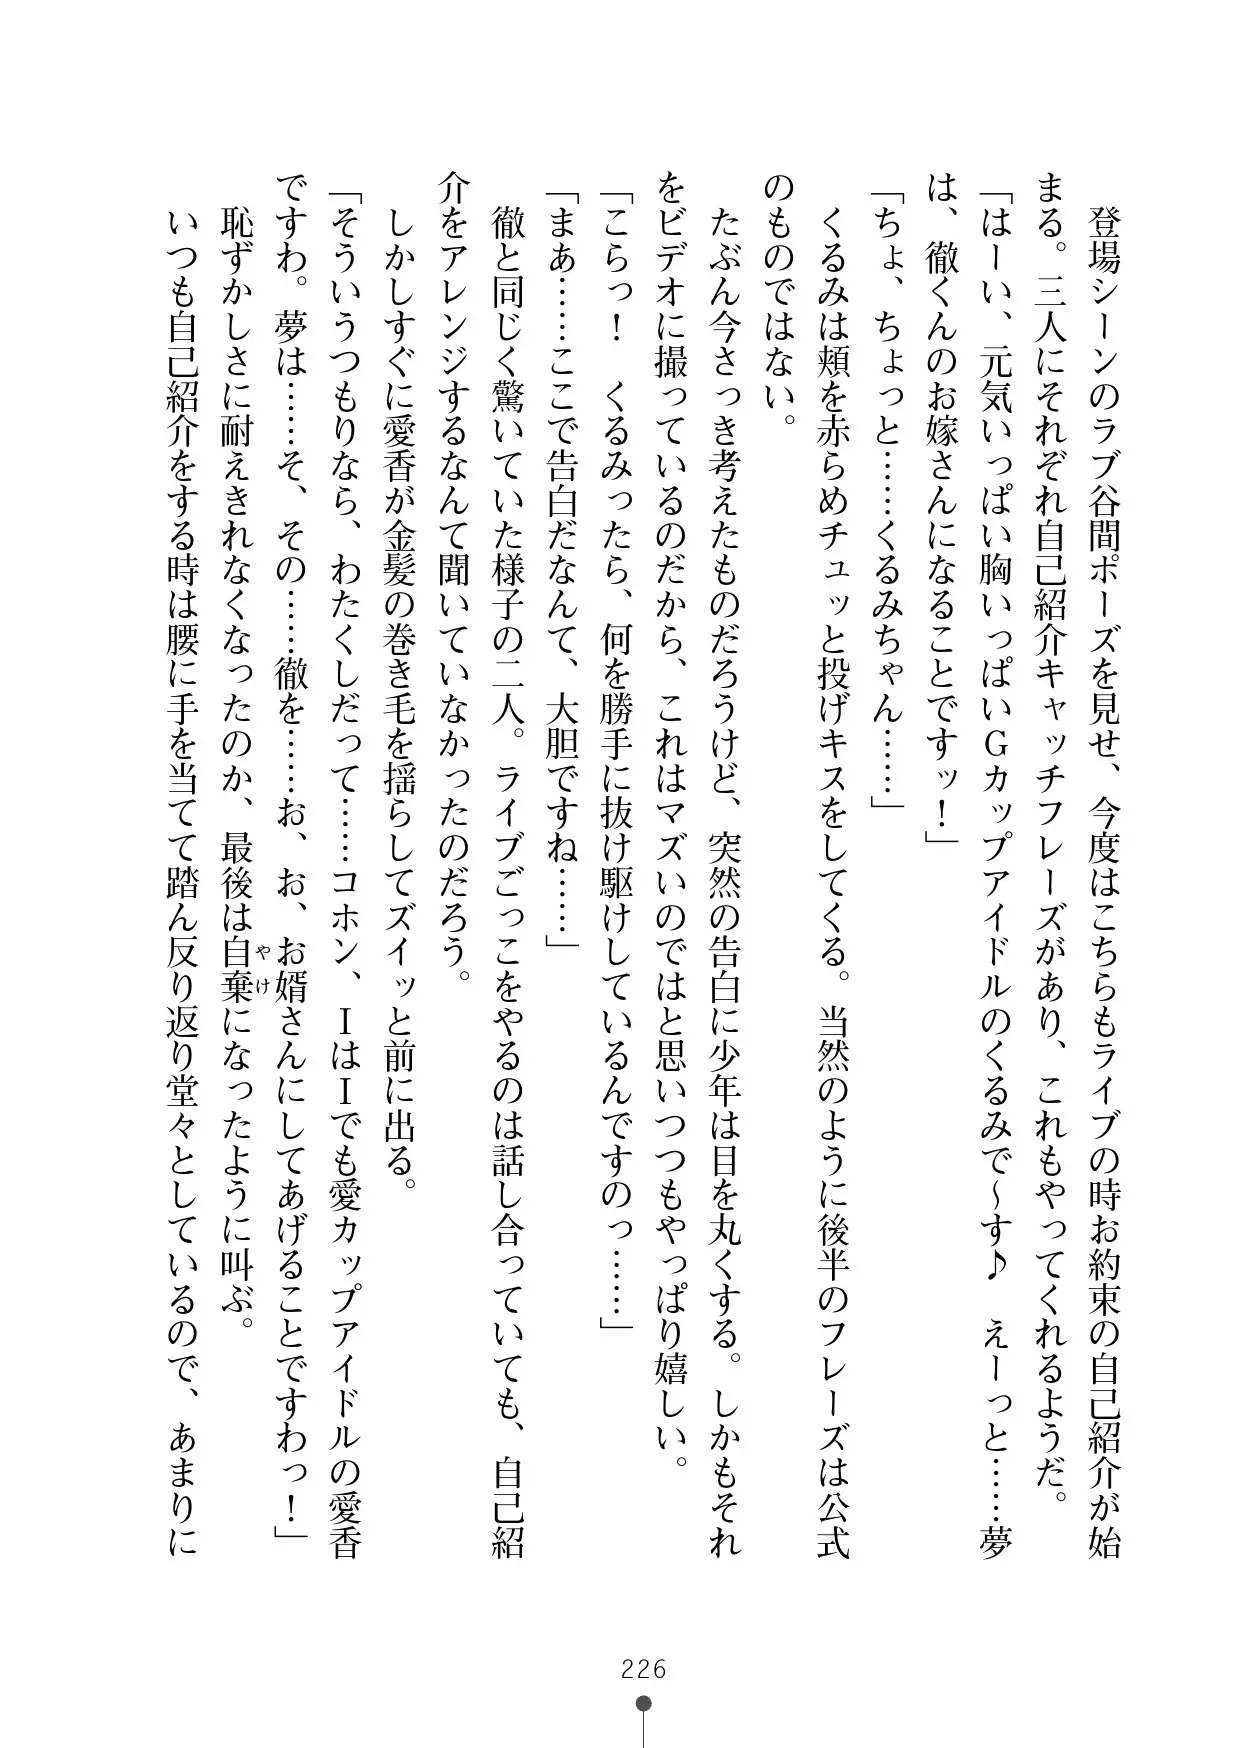 登場シーンのラブ谷間ポーズを見せ、今度はこちらもライブの時お約束の自己紹介が始
まる。三人にそれぞれ自己紹介キャッチフレーズがあり、これもやってくれるようだ。
「はーい、元気いっぱい胸いっぱいGカップアイドルのくるみで〜す♪　えーっと……夢
は、徹くんのお嫁さんになることですッ！」
「ちょ、ちょっと……くるみちゃん……」
くるみは頬を赤らめチュッと投げキスをしてくる。当然のように後半のフレーズは公式
のものではない。
たぶん今さっき考えたものだろうけど、突然の告白に少年は目を丸くする。しかもそれ
をビデオに撮っているのだから、これはマズいのではと思いつつもやっぱり嬉しい。
「こらっ！　くるみったら、何を勝手に抜け駆けしているんですのっ……」
「まあ……ここで告白だなんて、大胆ですね……」
徹と同じく驚いていた様子の二人。ライブごっこをやるのは話し合っていても、自己紹
介をアレンジするなんて聞いていなかったのだろう。
しかしすぐに愛香が金髪の巻き毛を揺らしてズイッと前に出る。
「そういうつもりなら、わたくしだって……コホン、IはIでも愛カップアイドルの愛香
ですわ。夢は……そ、その……徹を……お、お、お婿さんにしてあげることですわっ！」
恥ずかしさに耐えきれなくなったのか、最後は自棄になったように叫ぶ。
やけ
いつも自己紹介をする時は腰に手を当てて踏ん反り返り堂々としているので、あまりに
226